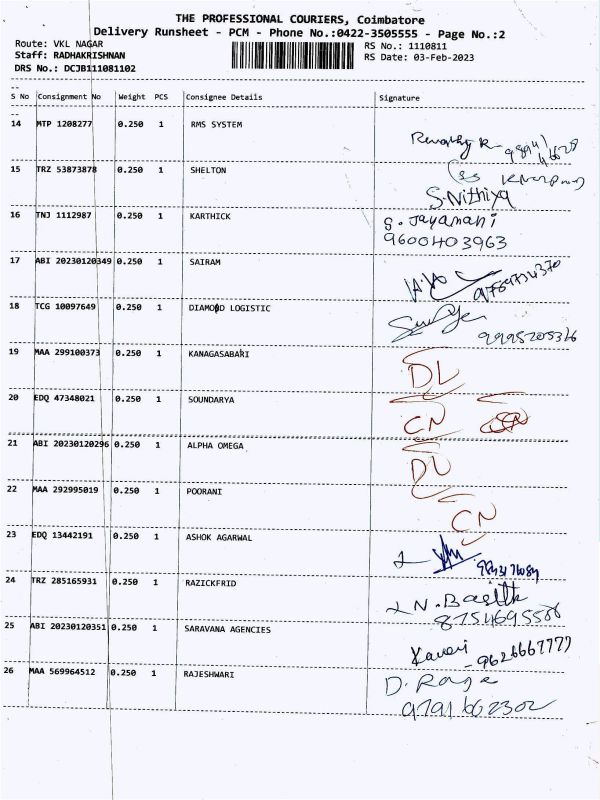 THE PROFESSIONAL COURIERS, Coimbatore
Delivery Runsheet - PCM - Phone No.:0422-3505555 - Page No.:2
Route: VKL NAGAR RS No.: 1110811
Staff: RADHAKRISHNAN RS Date: 03-Feb-2023
DRS No.: DCJB111081102
--
S No Consignment No Weight PCS Consignee Details Signature
--
14 MTP 1208277 0.250 1 RMS SYSTEM
15 TRZ 53873878 0.250 1 SHELTON
S.Nithiya
16 TNJ 1112987 0.250 1 KARTHICK S. Jayamani
9600403963
17 ABI 20230120349 0.250 1 SAIRAM
18 TCG 10097649 0.250 1 DIAMOND LOGISTIC
9995205316
19 MAA 299100373 0.250 1 KANAGASABARI DL
20 EDQ 47348021 0.250 1 SOUNDARYA CN
21 ABI 20230120296 0.250 1 ALPHA OMEGA DL
22 MAA 292995019 0.250 1 POORANI CN
23 EDQ 13442191 0.250 1 ASHOK AGARWAL
24 TRZ 285165931 0.250 1 RAZICKFRID N. Basith
8754695586
25 ABI 20230120351 0.250 1 SARAVANA AGENCIES Kaveri
-9626667777
26 MAA 569964512 0.250 1 RAJESHWARI D. Raja
9791662302